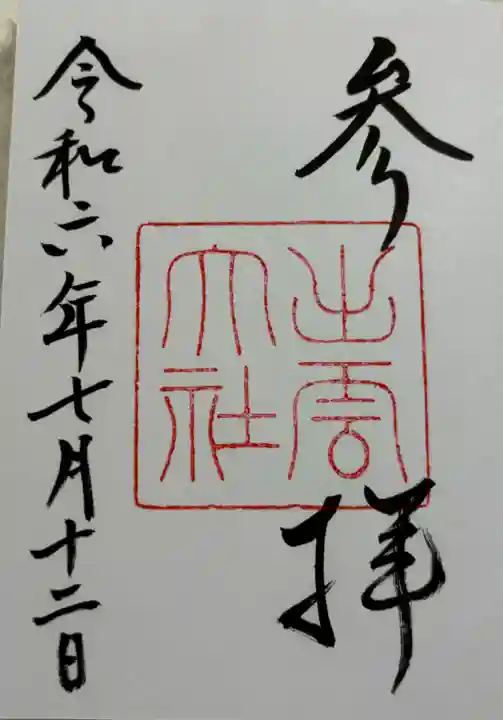 参拝
出雲
大社
令和六年七月十二日